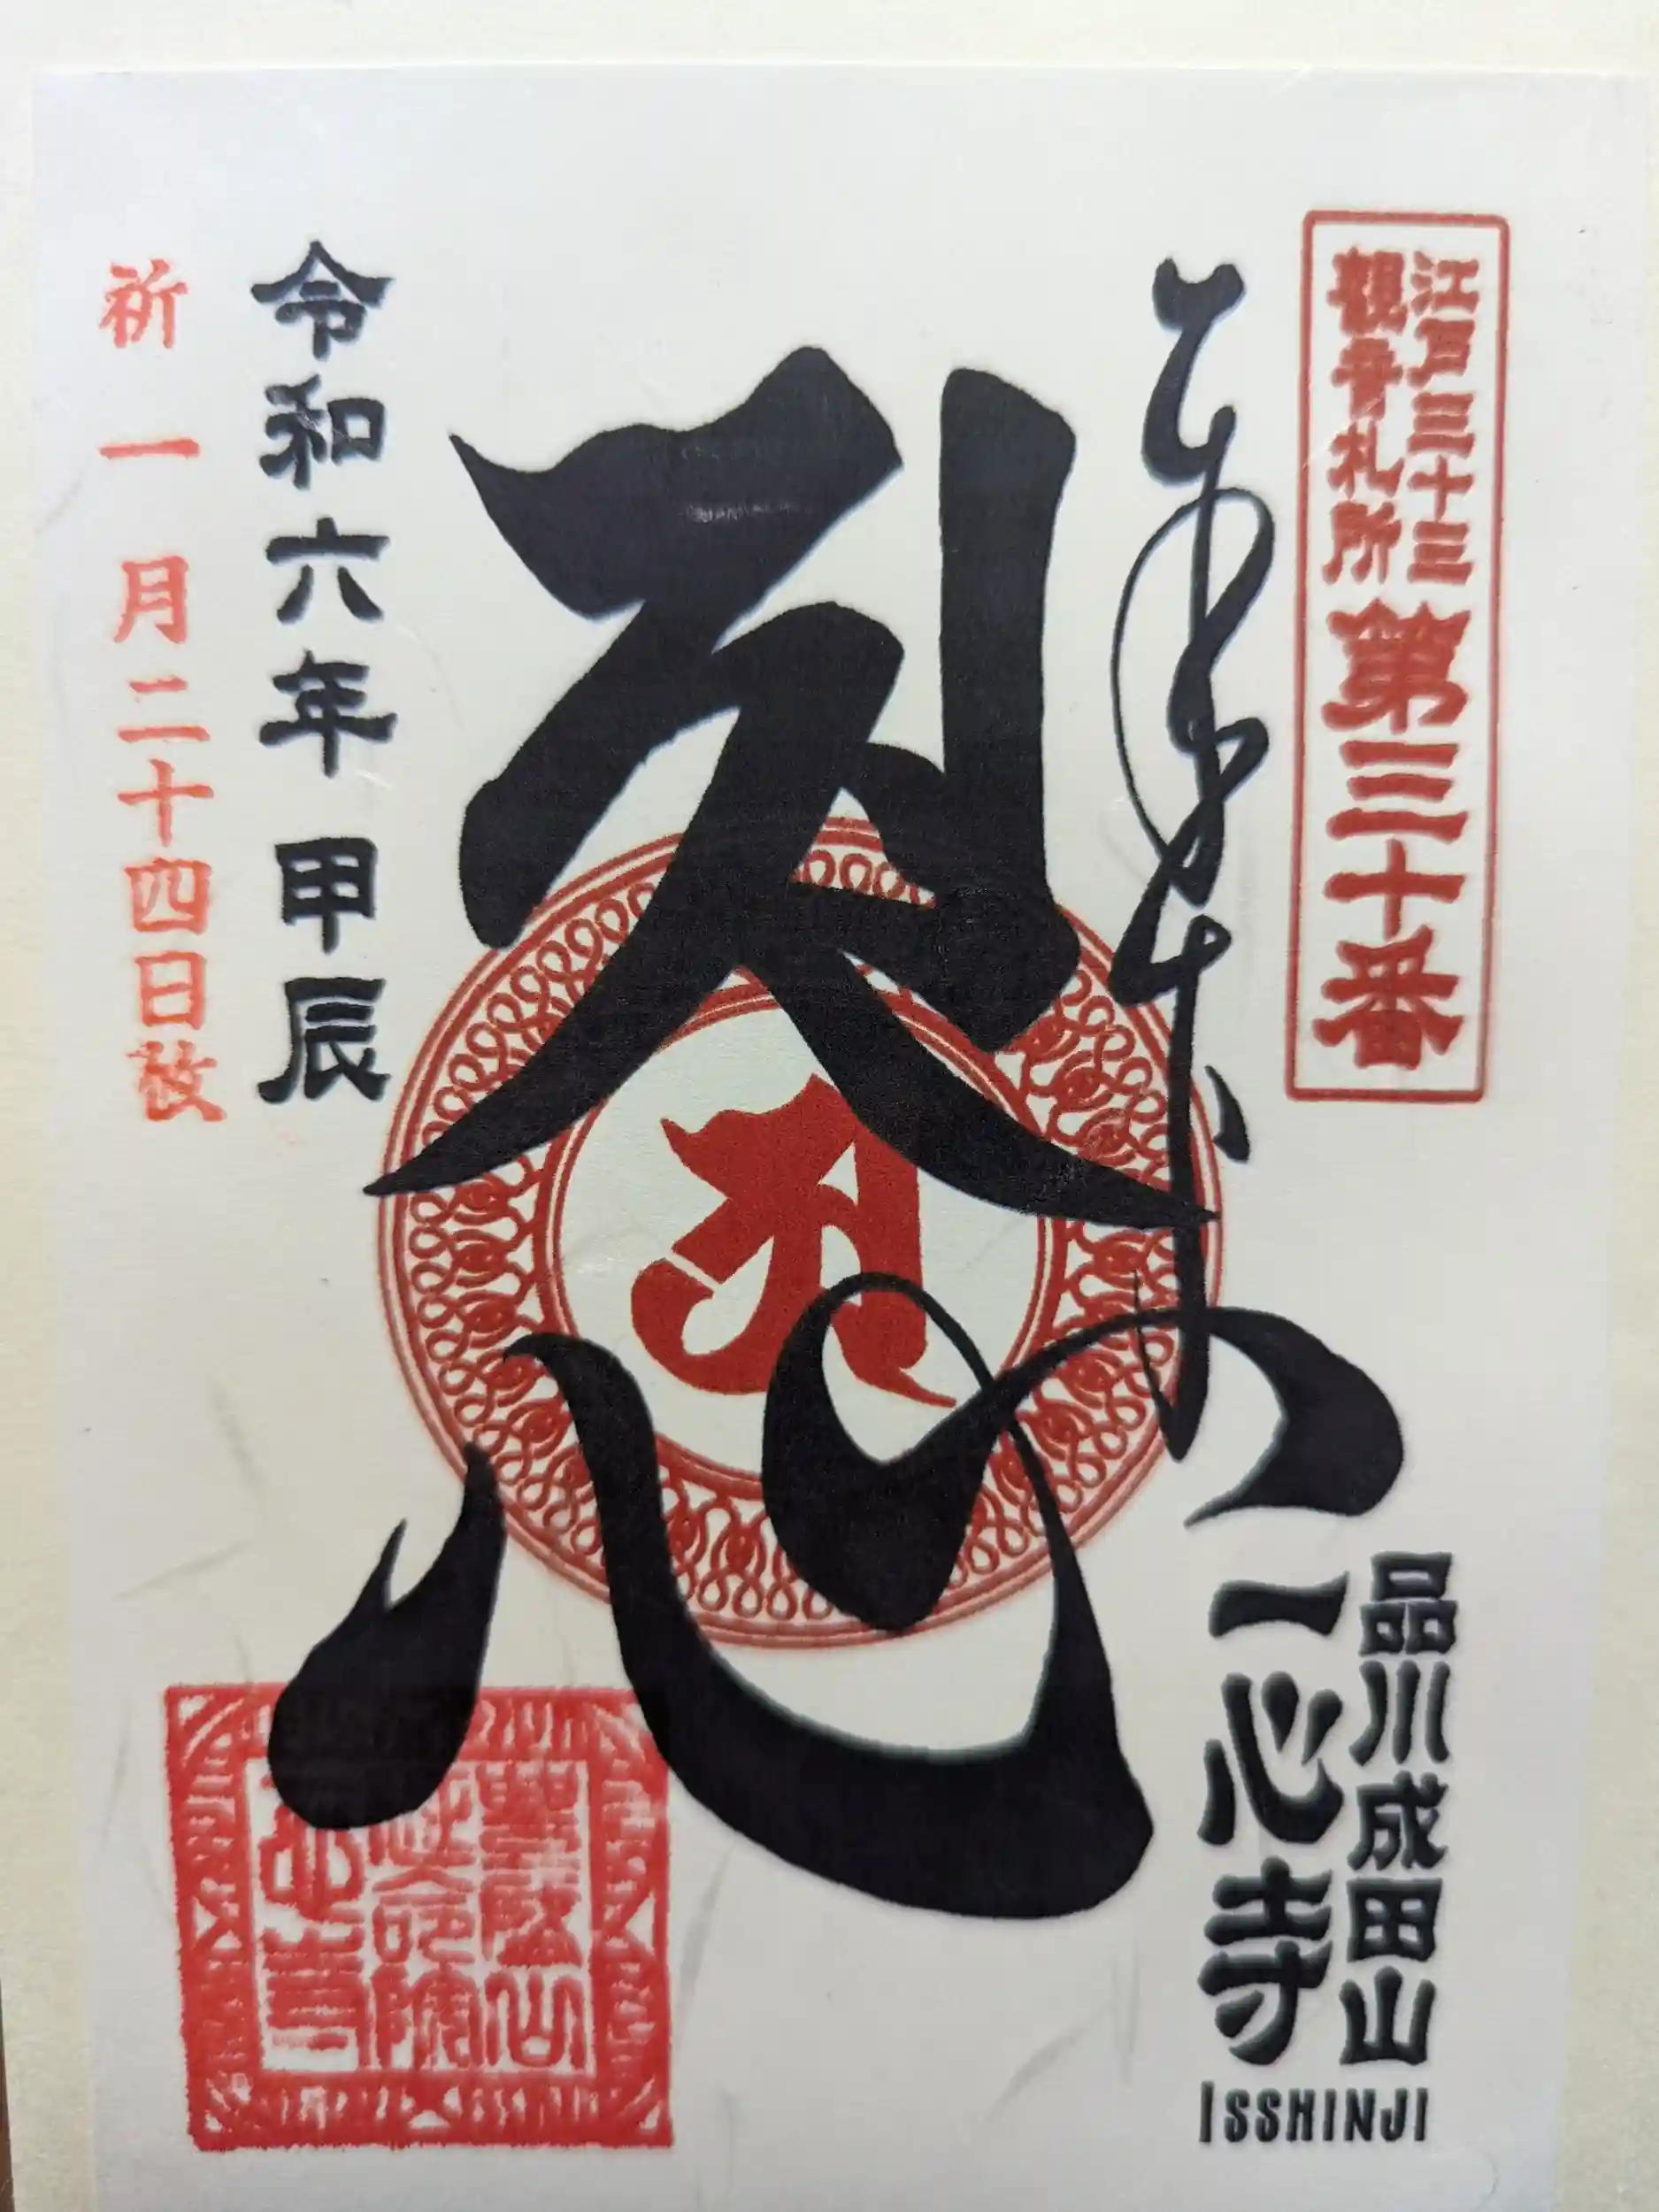 江戸三十三
観音札所
第三十番
品川成田山
一心寺
ISSHINJI
心
令和六年 甲辰
祈 一月二十四日
延命院